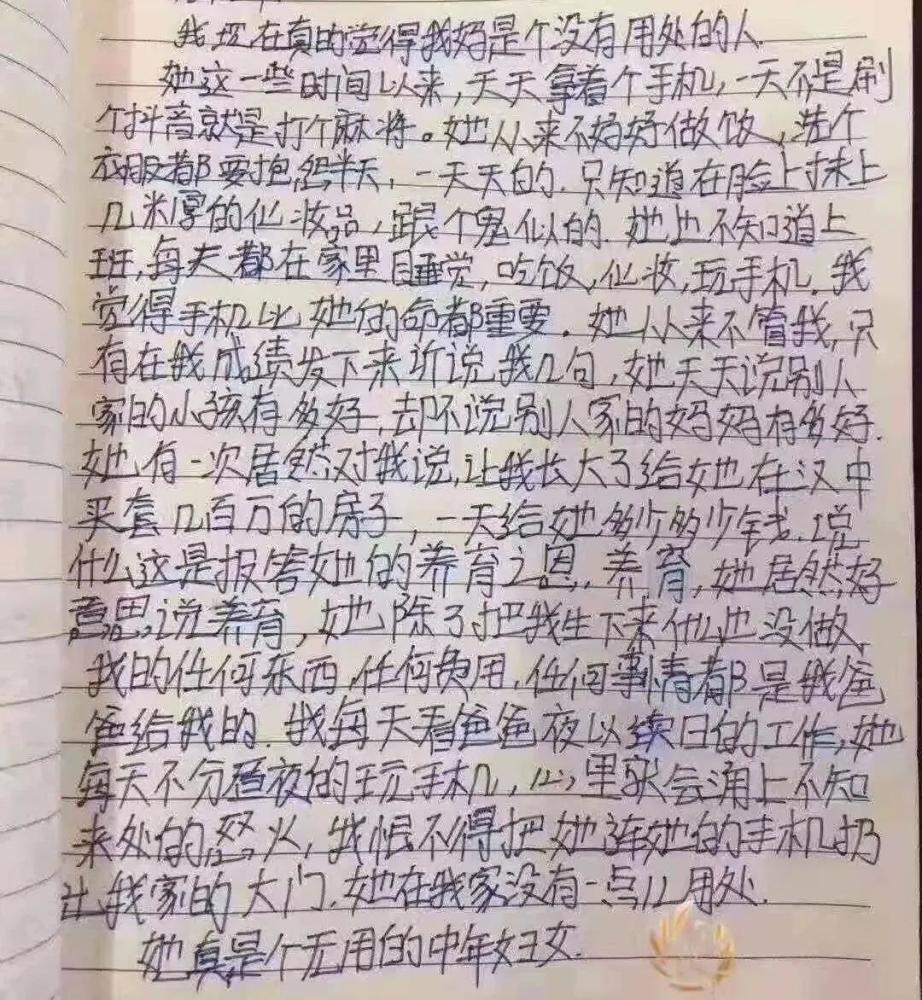 我现在真的觉得我妈是个没有用处的人.
她这一些时间以来,天天拿着个手机,一天不是刷
个抖音就是打个麻将。她从来不好好做饭,洗个
衣服都要抱怨半天,一天天的.只知道在脸上抹上
几米厚的化妆品,跟个鬼似的.她也不知道上
班,每天都在家里睡觉,吃饭,化妆,玩手机.我
觉得手机比她的命都重要。她从来不管我,只
有在我成绩发下来听说我几句,她天天说别人
家的小孩有多好,却不说别人家的妈妈有多好.
她有一次居然对我说,让我长大了给她在汉中
买套几百万的房子,一天给她多少多少钱.说
什么这是报答她的养育之恩.养育,她居然好
意思说养育,她除了把我生下来什么也没做.
我的任何东西,任何费用,任何事情都是我爸
爸给我的.我每天看爸爸夜以续日的工作,她
每天不分昼夜的玩手机,心里就会涌上不知
来处的怒火,我恨不得把她连她的手机扔
出我家的大门.她在我家没有一点儿用处.
她真是个无用的中年妇女.